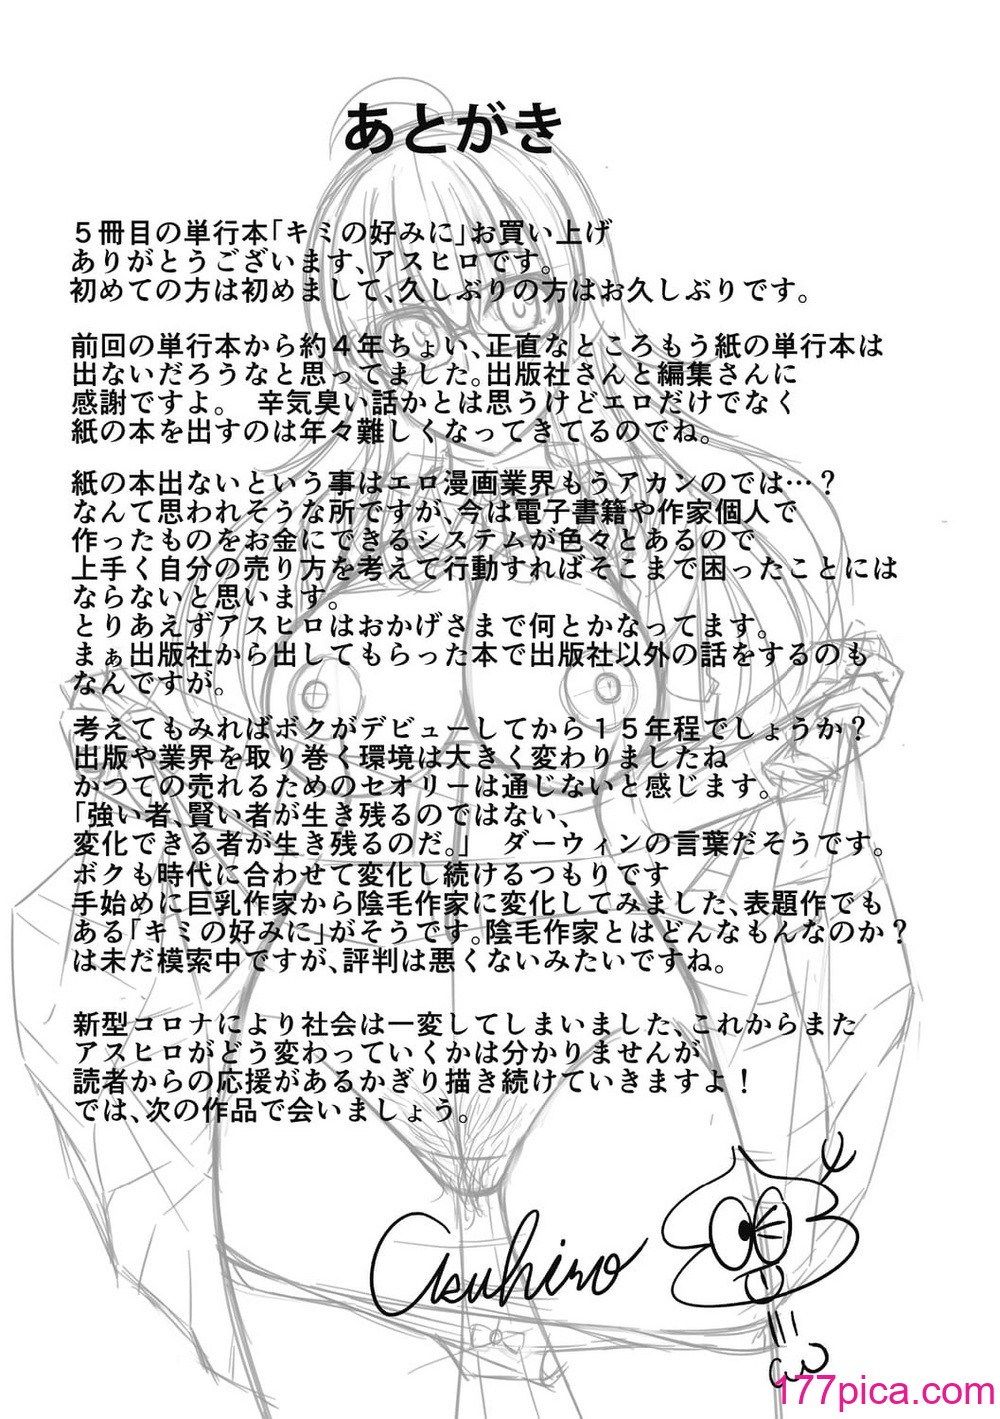 あとがき
5冊目の単行本「キミの好みに」お買い上げ
ありがとうございます、アスヒロです。
初めての方は初めまして、久しぶりの方はお久しぶりです。
前回の単行本から約4年ちょい、正直なところもう紙の単行本は
出ないだろうなと思ってました。出版社さんと編集さんに
感謝ですよ。 辛気臭い話かとは思うけどエロだけでなく
紙の本を出すのは年々難しくなってきてるのでね。
紙の本出ないという事はエロ漫画業界もうアカンのでは…?
なんて思われそうな所ですが、今は電子書籍や作家個人で
作ったものをお金にできるシステムが色々とあるので
上手く自分の売り方を考えて行動すればそこまで困ったことには
ならないと思います。
とりあえずアスヒロはおかげさまで何とかなってます。
まぁ出版社から出してもらった本で出版社以外の話をするのも
なんですが。
考えてもみればボクがデビューしてから15年程でしょうか?
出版や業界を取り巻く環境は大きく変わりましたね
かつての売れるためのセオリーは通じないと感じます。
「強い者、賢い者が生き残るのではない、
変化できる者が生き残るのだ。」 ダーウィンの言葉だそうです。
ボクも時代に合わせて変化し続けるつもりです
手始めに巨乳作家から陰毛作家に変化してみました、表題作でも
ある「キミの好みに」がそうです。陰毛作家とはどんなもんなのか?
は未だ模索中ですが、評判は悪くないみたいですね。
新型コロナにより社会は一変してしまいました、これからまた
アスヒロがどう変わっていくかは分かりませんが
読者からの応援があるかぎり描き続けていきますよ!
では、次の作品で会いましょう。
Asuhiro
177pica.com